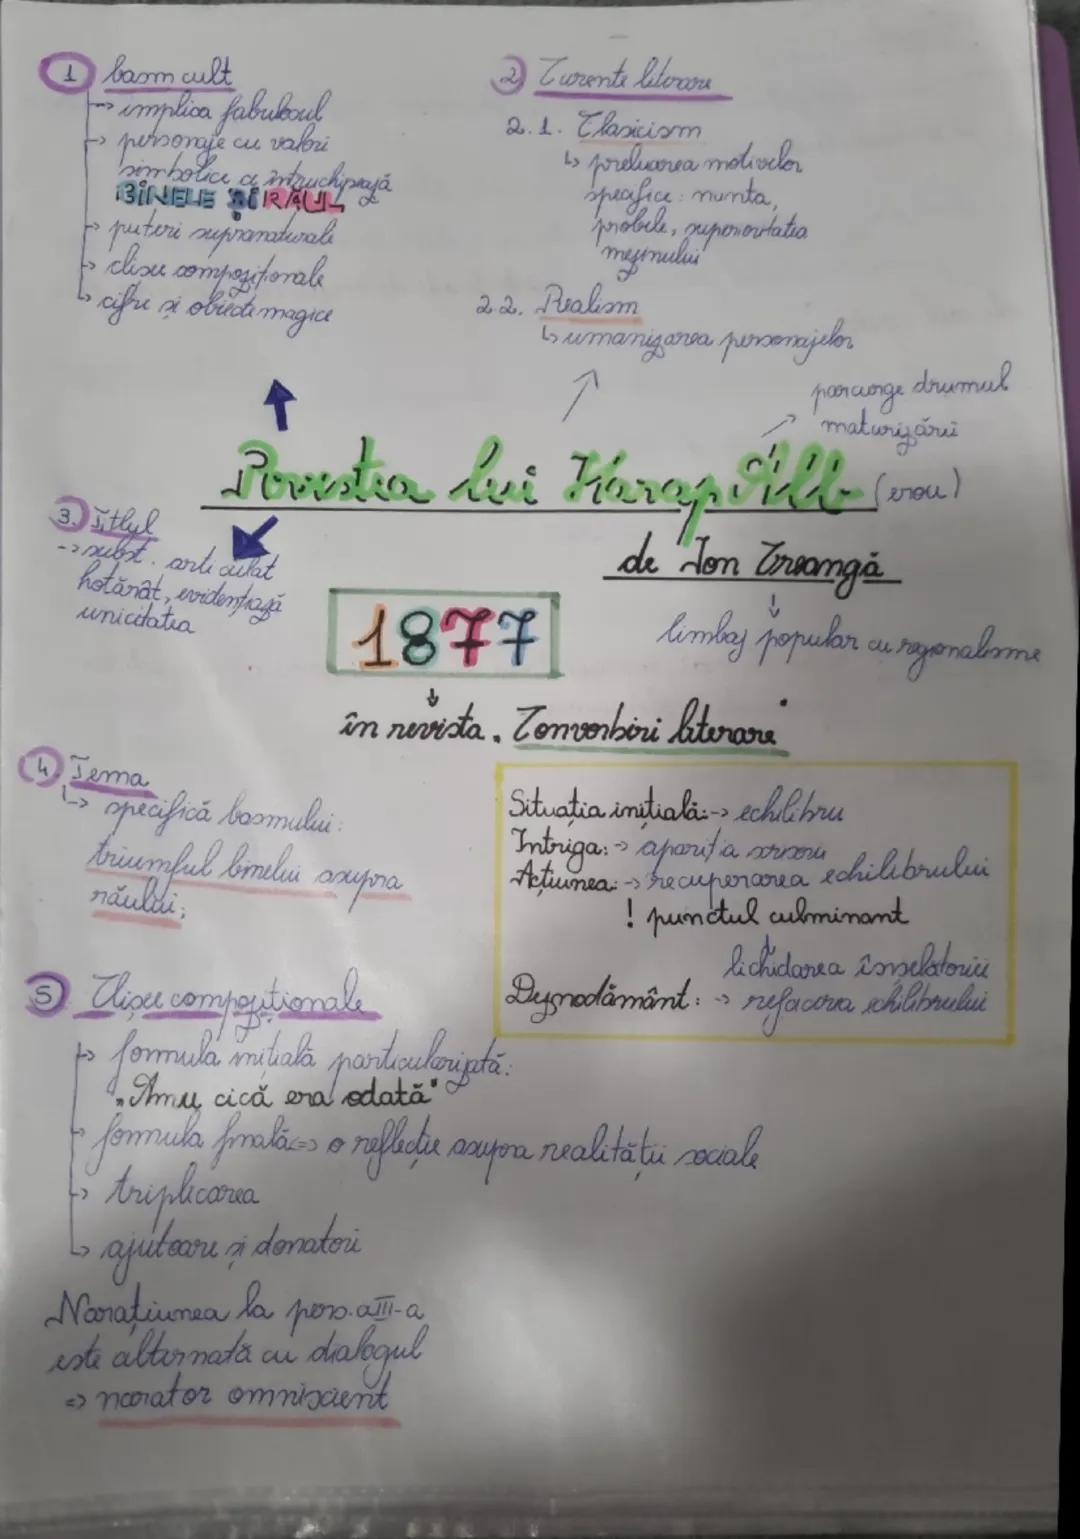 1 basm cult
→ implica fabulosul
→ personaje cu valori
simbolice ce întruchipează
BINELE ȘI RĂUL
→ puteri supranaturale
→ clisee compoziționale
→ cifre și obiecte magice
2 Curente literare
2.1. Clasicism
↳ preluarea motivelor
specifice: nunta,
probele, superioritatea
mezinului
2.2. Realism
↳ umanizarea personajelor
parcurge drumul
maturizării
Povestea lui Harap Alb (erou)
de Ion Creangă
limbaj popular cu regionalisme
3. Titlul
-> subst. articulat
hotărât, evidențiază
unicitatea
1877
în revista „Convorbiri literare"
4 Tema
↳ specifică basmului:
triumful binelui asupra
răului;
Situația inițială: -> echilibru
Intriga: -> apariția scrisorii
Acțiunea: -> recuperarea echilibrului
! punctul culminant
lichidarea înșelătoriei
Deznodământ: -> refacerea echilibrului
5 Clisee compoziționale
→ formula inițială particularizată:
„Amu cică era odată"
→ formula finală => o reflecție asupra realității sociale
→ triplicarea
→ ajutoare și donatori
Narațiunea la pers. a III-a
este alternată cu dialogul
=> narator omniscient